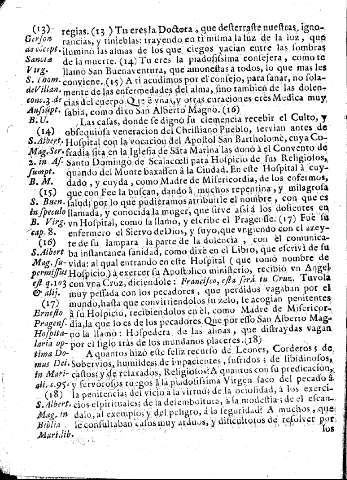 (13)
Gerson
de cöcept.
Sanctæ
Virg.
S. Thom.
de Villan.
conc. 3. de
Assüpt.
B. V.
(14)
S. Albert.
Mag. Ser.
2. in Assumpt.
B. M.
(15)
S. Buen.
in speculo
B. Virg.
cap. 8.
(16)
S. Albert
Mag. su-
permissus
est q. 103
& alij.
(17)
Ernesto
Pragens.
Hospita-
laria op-
tima Do-
mus Dei.
in Mari-
ali. c. 95.
(18)
S. Albert.
Mag. in
Biblia
Mari. lib.
regias. (13) Tu eres la Doctora, que desterraste nuestras, igno-
rancias, y tinieblas: trayendo en ti misma la luz de la luz, que
ilumino las almas de los que ciegos yacian entre las sombras
de la muerte. (14) Tu eres la piadosissima consejera, como te
llamo San Buenaventura, que amonestas a todos, lo que mas les
conviene. (15) A ti acudimos por el consejo, para sanar, no sola-
mente de las enfermedades del alma, sino tambien de las dolen-
cias del cuerpo Que á unas, y otras curaciones eres Medica muy
sabia, como dixo San Alberto Magno. (16)
Las casas, donde se dignó su clemencia recebir el Culto, y
obsequiosa veneracion del Christiano Pueblo, servian antes de
Hospital con la vocacion del Apostol San Bartholomé, cuya Co-
fradia sita en la Iglesia de Sãta Marina las donò à el Convento de
Santo Domingo de Scalacœli para Hospicio de sus Religiosos,
quando del Monte baxassen à la Ciudad. En este Hospital à cuy-
dado, y cuyda, como Madre de Misericordia, de los enfermos,
que con Fee la buscan, dando à muchos repentina, y milagrosa
salud: por lo que pudieramos atribuirle el nombre, con que es
llamada, y conocida la muger, que sirve assi á los dolientes en
vn Hospital, como la llamo, y escribe el Pragense. (17) Fue su
enfermero el Siervo de Dios, y suyo, que vngiendo con el azey-
te de su lampara la parte de la dolencia, con el comunica-
ba instantanea sanidad, como dixe en el Libro, que escriví de su
vida: al qual entrando en este Hospital (que tomó nombre de
Hospicio) à exercer su Apostolico ministerio, recibió vn Angel
con vna Cruz, diciendole: Francisco, esta será tu Cruz. Tuvola
muy pessada con los pecadores, que perdidos vagaban por el
mundo, hasta que convirtiendolos su zelo, le acogian penitentes
à su Hospicio, recibiendolos en él, como Madre de Misericor-
dia, la que lo es de los pecadores. Que por esso San Alberto Mag-
no la llamo: Hospedera de las almas, que distraydas vagan
por el siglo tras de los mundanos placeres. (18)
A quantos hizo este feliz recurso de Leones, Corderos, de
Sobervios, humildes de impacientes, sufridos de libidinosos,
castos; y de relaxados, Religiosos! A quantos con su predicacion,
y fervorosos ruegos à la piadosissima Virgen saco del pecado à
la penitencia: del vicio à la virtud: de la ociosidad, à los exerci-
cios espirituales; de la desemboltura, à la modestia; de el escan-
dalo, al exemplo; y del peligro, à la seguridad! A muchos, que
le consultaban casos muy arduos, y dificultosos de resolver por
los